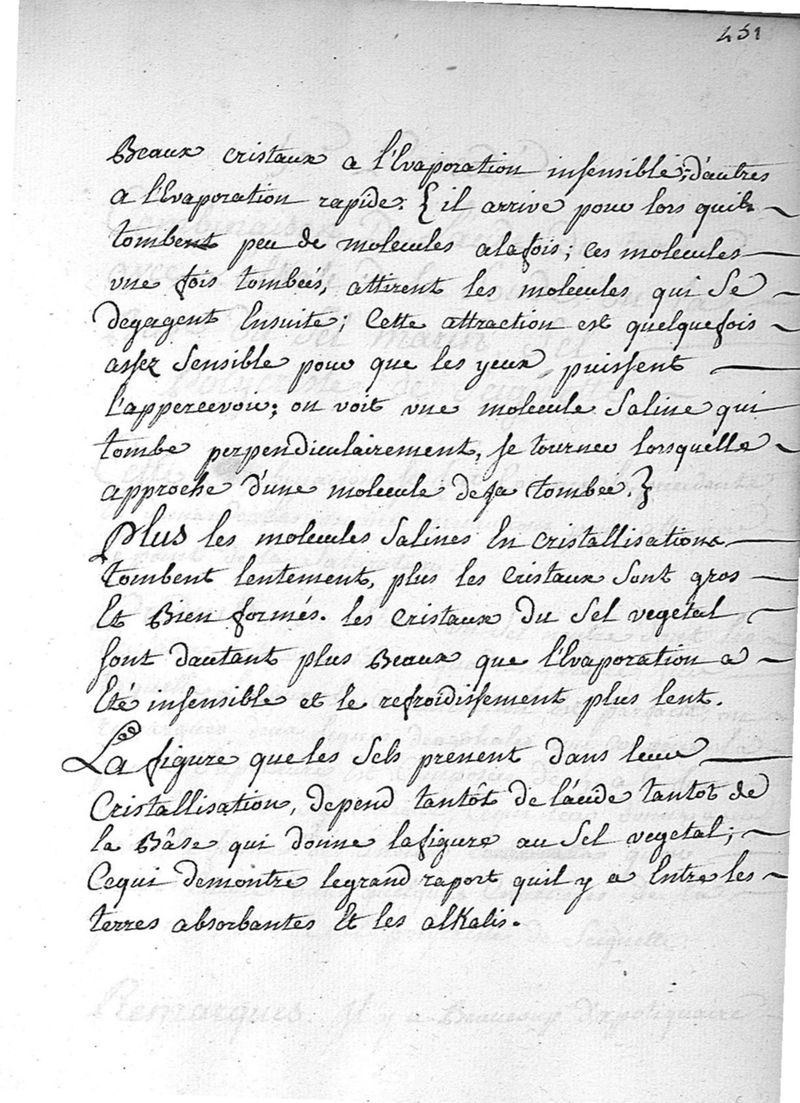 451
Beaux cristaux a l'Evaporation insensible; d'autres
a l'Evaporation rapide. { il arrive pour lors quil
tombent peu de molecules alafois; ces molecules
vne fois tombeés, attirent les molecules qui se
degagent Ensuite; Cette attraction est quelquefois
assez sensible pour que les yeux puissent
l'appercevoir; on voit vne molecule saline qui
tombe perpendiculairement, se tourner lorsquelle
approche d'une molecule deja tombée. }
Plus les molecules salines En cristallisation
tombent lentement, plus les cristaux sont gros
Et Bien formés. les cristaux du sel vegetal
sont dautant plus Beaux que l'Evaporation a
Eté insensible et le refroidissement plus lent.
La figure que les sels prenent dans leur
Cristallisation, depend tantôt de l'acide tantot de
la Bâse qui donne lafigure au sel vegetal;
Cequi demontre legrand raport quil y a Entre les
terres absorbantes Et les alkalis.
Remarques. Il y a Beaucoup d'apotiquaire